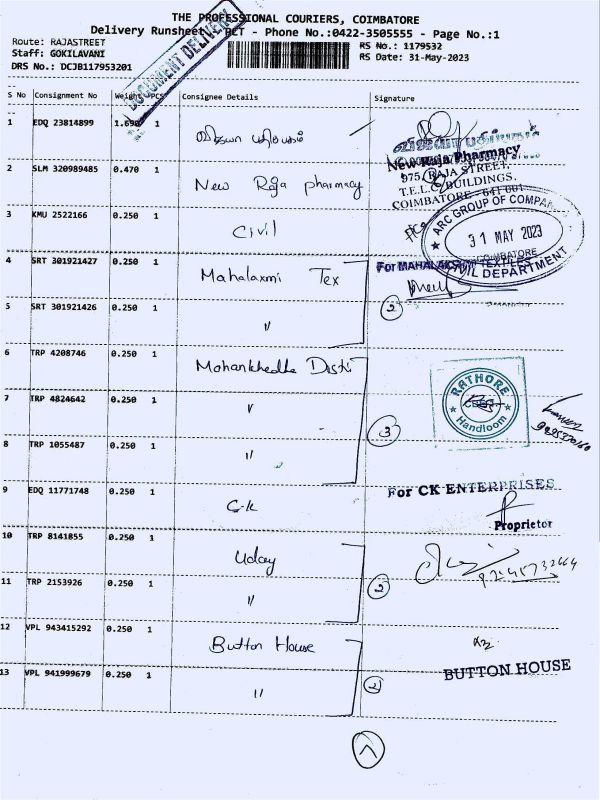 THE PROFESSIONAL COURIERS, COIMBATORE
Delivery Runsheet - Phone No.:0422-3505555 - Page No.:1
Route: RAJASTREET
Staff: GOKILAVANI
DRS No.: DCJB117953201
RS No.: 1179532
RS Date: 31-May-2023
DOCUMENT DELIVERY
S No Consignment No Weight PCS Consignee Details Signature
1 EDQ 23814899 1.690 1
2 SLM 320989485 0.470 1 New Raja pharmacy
New Raja Pharmacy
975, RAJA STREET,
T.E.L.C. BUILDINGS,
COIMBATORE - 641 001
3 KMU 2522166 0.250 1 Civil
ARC GROUP OF COMPANIES
31 MAY 2023
COIMBATORE
CIVIL DEPARTMENT
4 SRT 301921427 0.250 1 Mahalaxmi Tex
For MAHALAKSHMI TEXTILES
5 SRT 301921426 0.250 1 "
2
6 TRP 4208746 0.250 1
7 TRP 4824642 0.250 1 "
RATHORE
Handloom
3
8 TRP 1055487 0.250 1 "
9 EDQ 11771748 0.250 1 C-k
For CK ENTERPRISES
Proprietor
10 TRP 8141855 0.250 1 Uday
11 TRP 2153926 0.250 1 "
2
12 VPL 943415292 0.250 1 Button House
BUTTON HOUSE
13 VPL 941999679 0.250 1 "
2